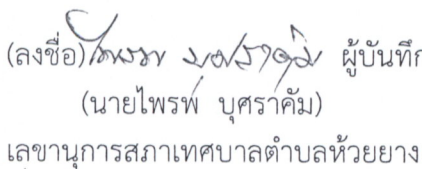 (ลงชื่อ)ไพรพ บุศราคัม ผู้บันทึก
(นายไพรพ บุศราคัม)
เลขานุการสภาเทศบาลตำบลห้วยยาง